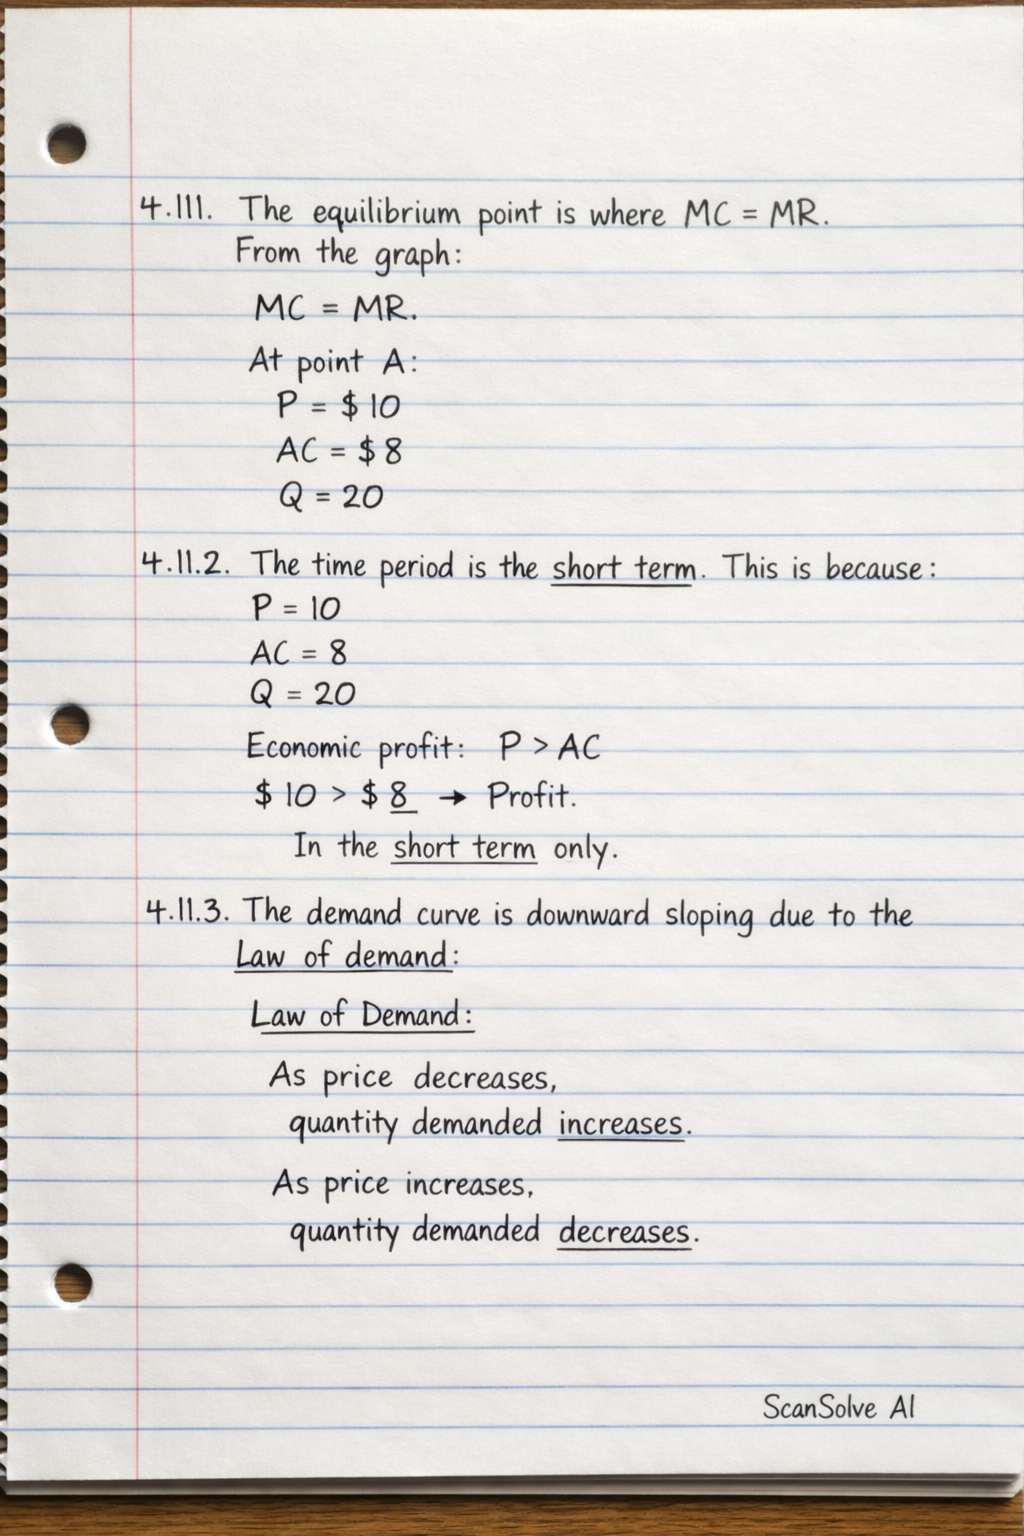 4.111. The equilibrium point is where MC = MR.
From the graph:
MC = MR.
At point A:
P = $ 10
AC = $ 8
Q = 20
4.11.2. The time period is the short term. This is because:
P = 10
AC = 8
Q = 20
Economic profit: P > AC
$ 10 > $ 8 → Profit.
In the short term only.
4.11.3. The demand curve is downward sloping due to the
Law of demand:
Law of Demand:
As price decreases,
quantity demanded increases.
As price increases,
quantity demanded decreases.
ScanSolve AI